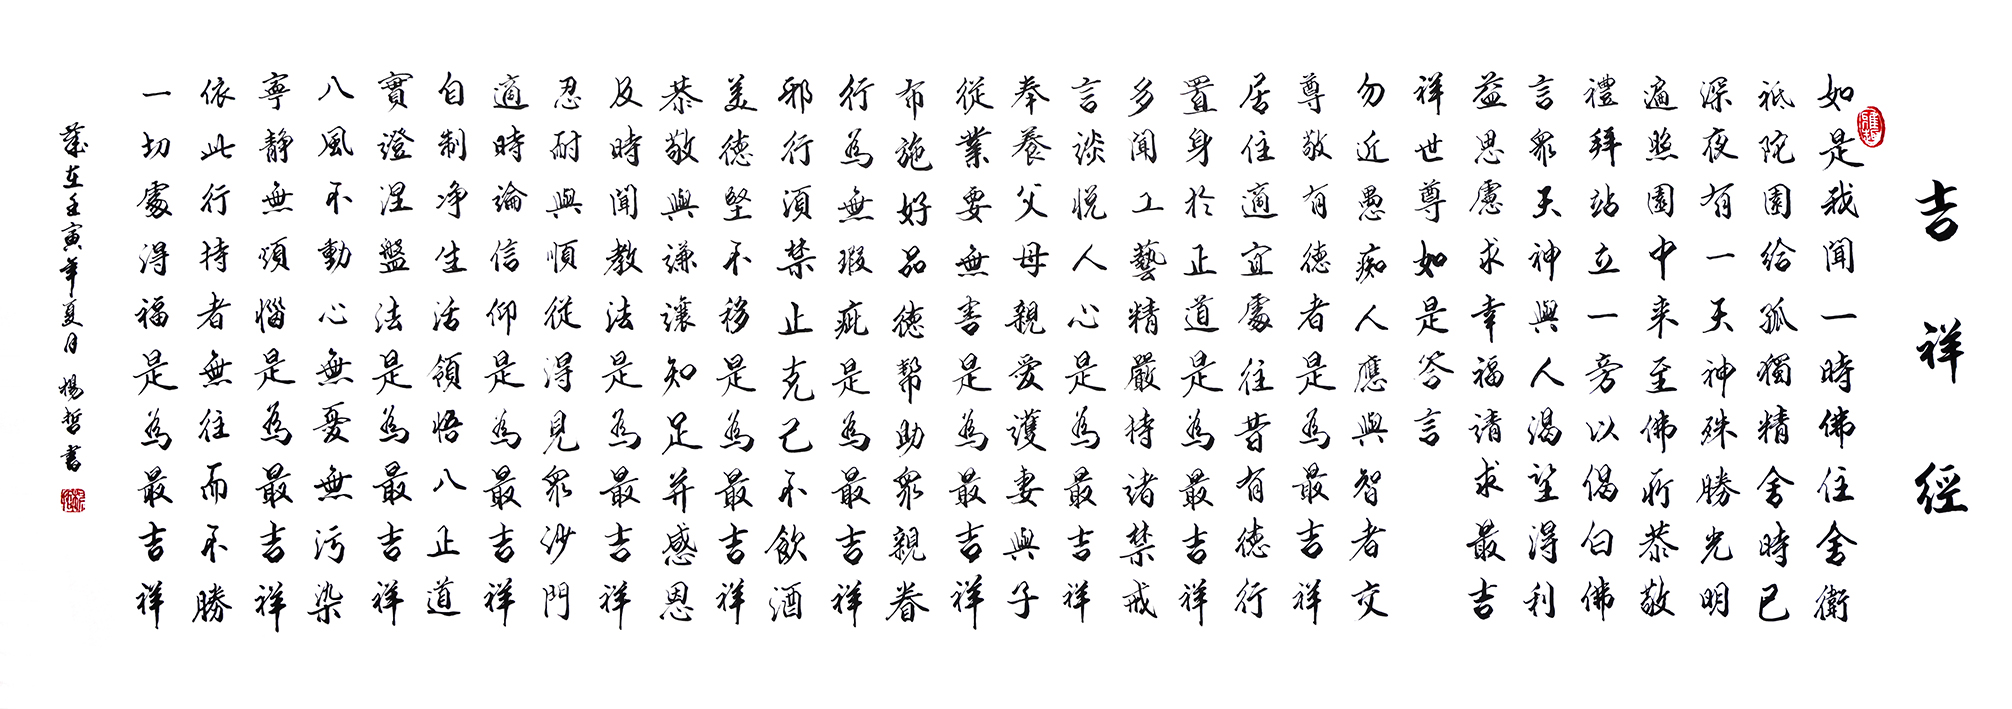 吉祥經
如是我聞一時佛住舍衛
祇陀園給孤獨精舍時已
深夜有一天神殊勝光明
遍照園中来至佛所恭敬
禮拜站立一旁以偈白佛
言眾天神與人渴望得利
益思慮求幸福請求最吉
祥世尊如是答言
勿近愚痴人應與智者交
尊敬有德者是為最吉祥
居住適宜處往昔有德行
置身於正道是為最吉祥
多聞工藝精嚴持諸禁戒
言談悅人心是為最吉祥
奉養父母親愛護妻與子
從業要無害是為最吉祥
布施好品德幫助眾親眷
行為無瑕疵是為最吉祥
邪行須禁止克己不飲酒
美德堅不移是為最吉祥
恭敬與謙讓知足并感恩
及時聞教法是為最吉祥
忍耐與順從得見眾沙門
適時論信仰是為最吉祥
自制净生活領悟八正道
實證涅盤法是為最吉祥
八風不動心無憂無污染
寧静無煩惱是為最吉祥
依此行持者無往而不勝
一切處得福是為最吉祥
歲在壬寅年夏月楊哲書